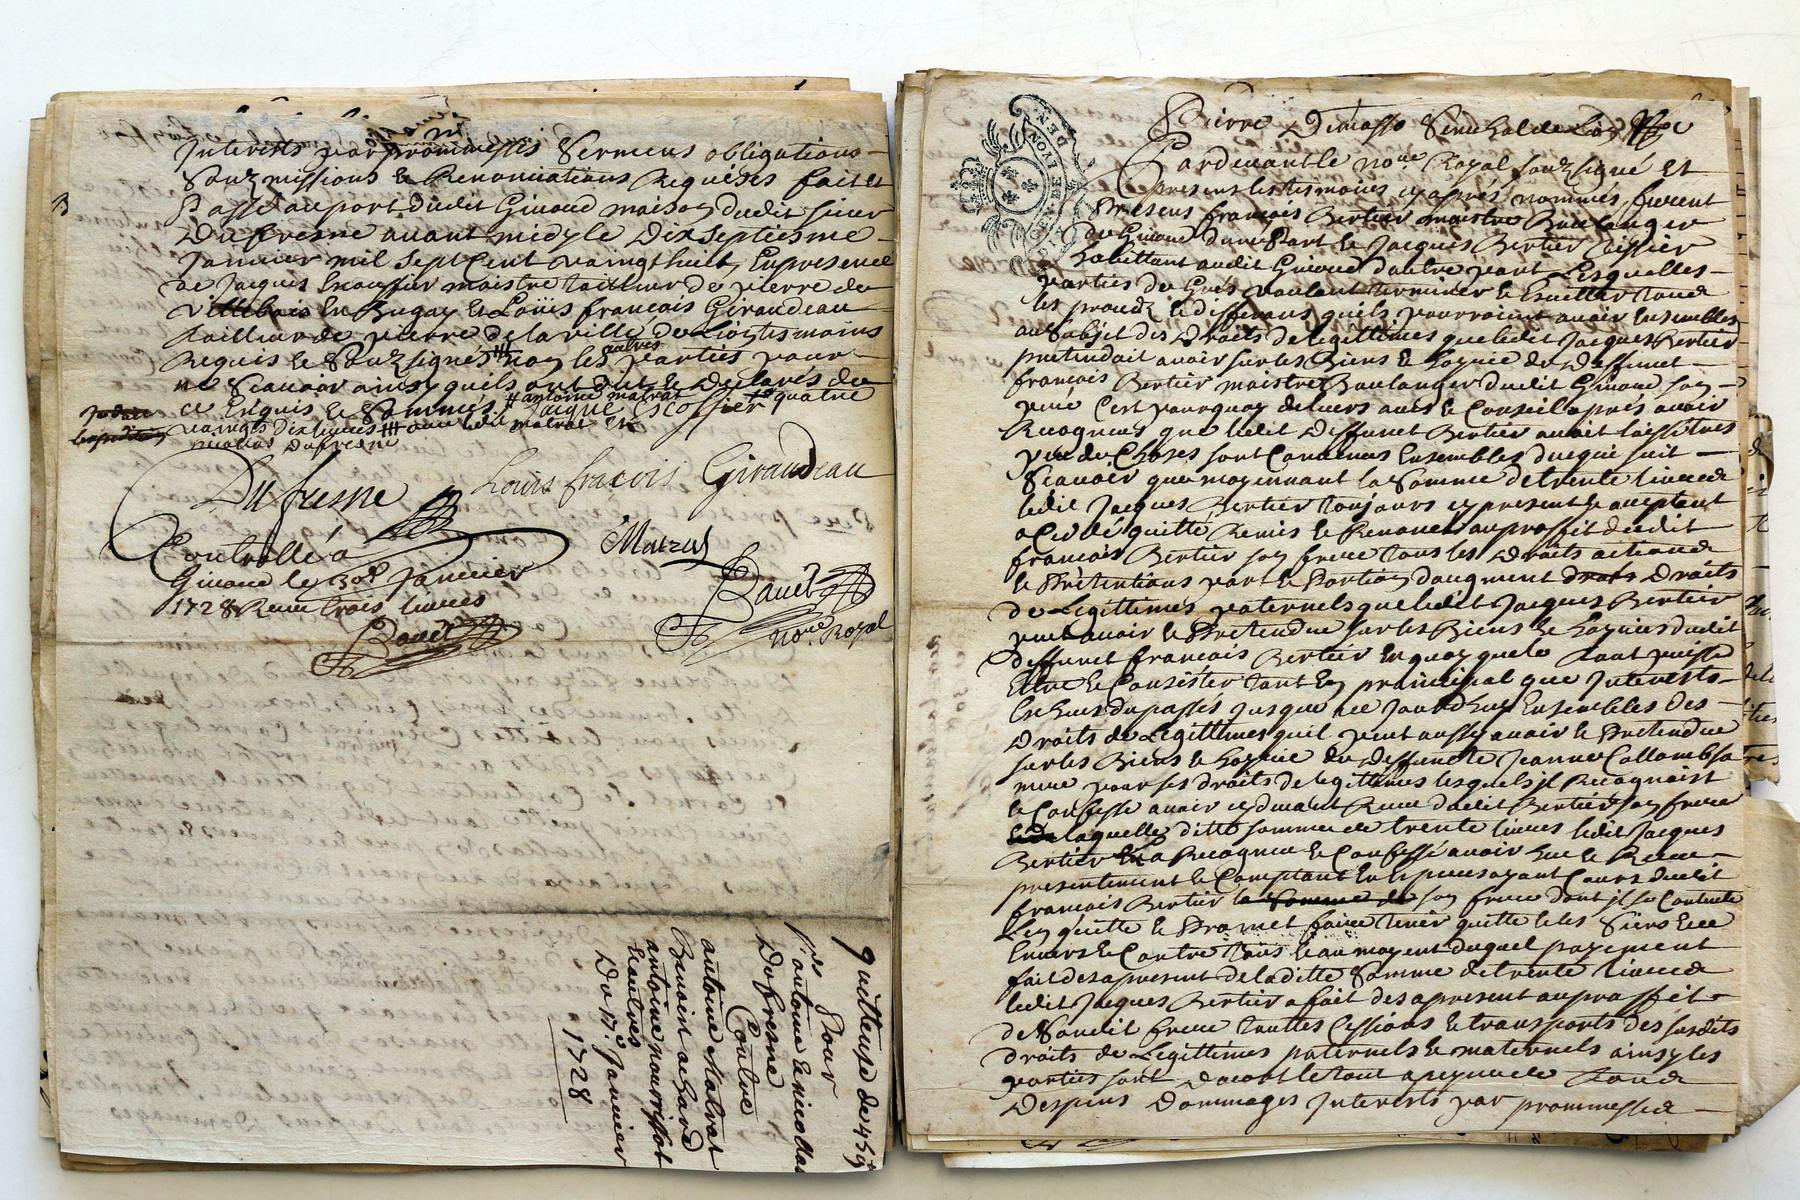 Interests par prommesses Sermens obligations
Soubzmissions & Renonciations Requises fait et
Passé au port dudit Givord maison dudit sieur
Dufresne avant midy le Dixseptiesme
Janvier mil sept Cent vaingthuit En presence
de Jacques Escoffier maistre tailleur de pierre de
Villebois En Bugay & Louis francois Girandeau
tailleur de pierre de la ville de Lion tesmoins
Requis & Soubzsignés non les autres parties pour
ne Scavoir ainsy quils ont dit & Declarés de
ce Enquis & Sommés
antoine matrat
Jaique Escoffier
quatre
vaingts dix livres
matrat
nicollas Dufresne
Dufresne
Louis fracois Girandeau
Controllé a
Givord le Janvier
1728 Receu trois livres
noᵗʳᵉ Royal
quittance de 459ᵗ
Pour
antoine & nicollas
Dufresne
Contre
antoine Matrat
Benoist
antoine nourrissat
& autres
Du 17ᵉ Janvier
1728
GEN. DE LYON
Pierre Senechal de Lion
Pardevant le noʳᵉ Royal soubzsigné Et
presens les tesmoins cy apres nommés furent
presens francois Bertier maistre Boulanger
de Givord dune Part & Jacques Bertier
habittant audit Givord dautre part Lesquelles
parties de Grés voulant terminer & tous
les procedz & differans quils pourroient avoir Ensembles
au Subjet des Droits de legittimes que ledit Jacques Bertier
pretendoit avoir sur les Biens & hoyrie de deffunct
francois Bertier maistre Boulanger dudit Givord son
pere Cest pourquoy de leurs avis & Conseil apres avoir
Recogneu que ledit Deffunct Bertier avoit laissé tres
peu de Choses sont Convenus Ensembles de ce que suit
Scavoir que moyennant la Somme de trente livres
ledit Jacques Bertier toujours cy present & aceptant
a Cedé quitté Remis & Renoncé au proffit dudit
francois Bertier son frere tous les Droits actions
& Pretentions part & Portion daugment Droits
de Legittimes paternels que ledit Jacques Bertier
peut avoir & Pretendre sur les Biens & hoyries dudit
deffunct francois Bertier En quoy que le tout puisse
Estre & Consister tant En principal que Interests
Escheus du passés jusque a ce jourdhuy Ensembles des
Droits de Legittimes quil peut aussy avoir & Pretendre
sur les Biens & hoyrie de deffuncte Jeanne Collomb sa
mere pour ses droits de legittimes lesquels jl Recognoist
& Confesse avoir cy devant Receu dudit Bertier son frere
laquelle ditte somme de trente livres ledit Jacques
Bertier a Recogneu & Confessé avoir heu & Receu
presentement & Comptant En Especes ayant Cours dudit
francois Bertier la somme de son frere dont jl se Contente
Len quitte & Promet faire tenir quitte & les Siens
Envers & Contre tous & au moyent duquel payement
fait des a present de laditte Somme de trente livres
ledit Jacques Bertier a fait des a present au proffit
de Sondit frere touttes Cessions & transports des susdits
droits de Legittimes paternels & maternels ainsy les
parties sont Dacort le tout a peyne de tous
Despens Dommages Interests par prommesses